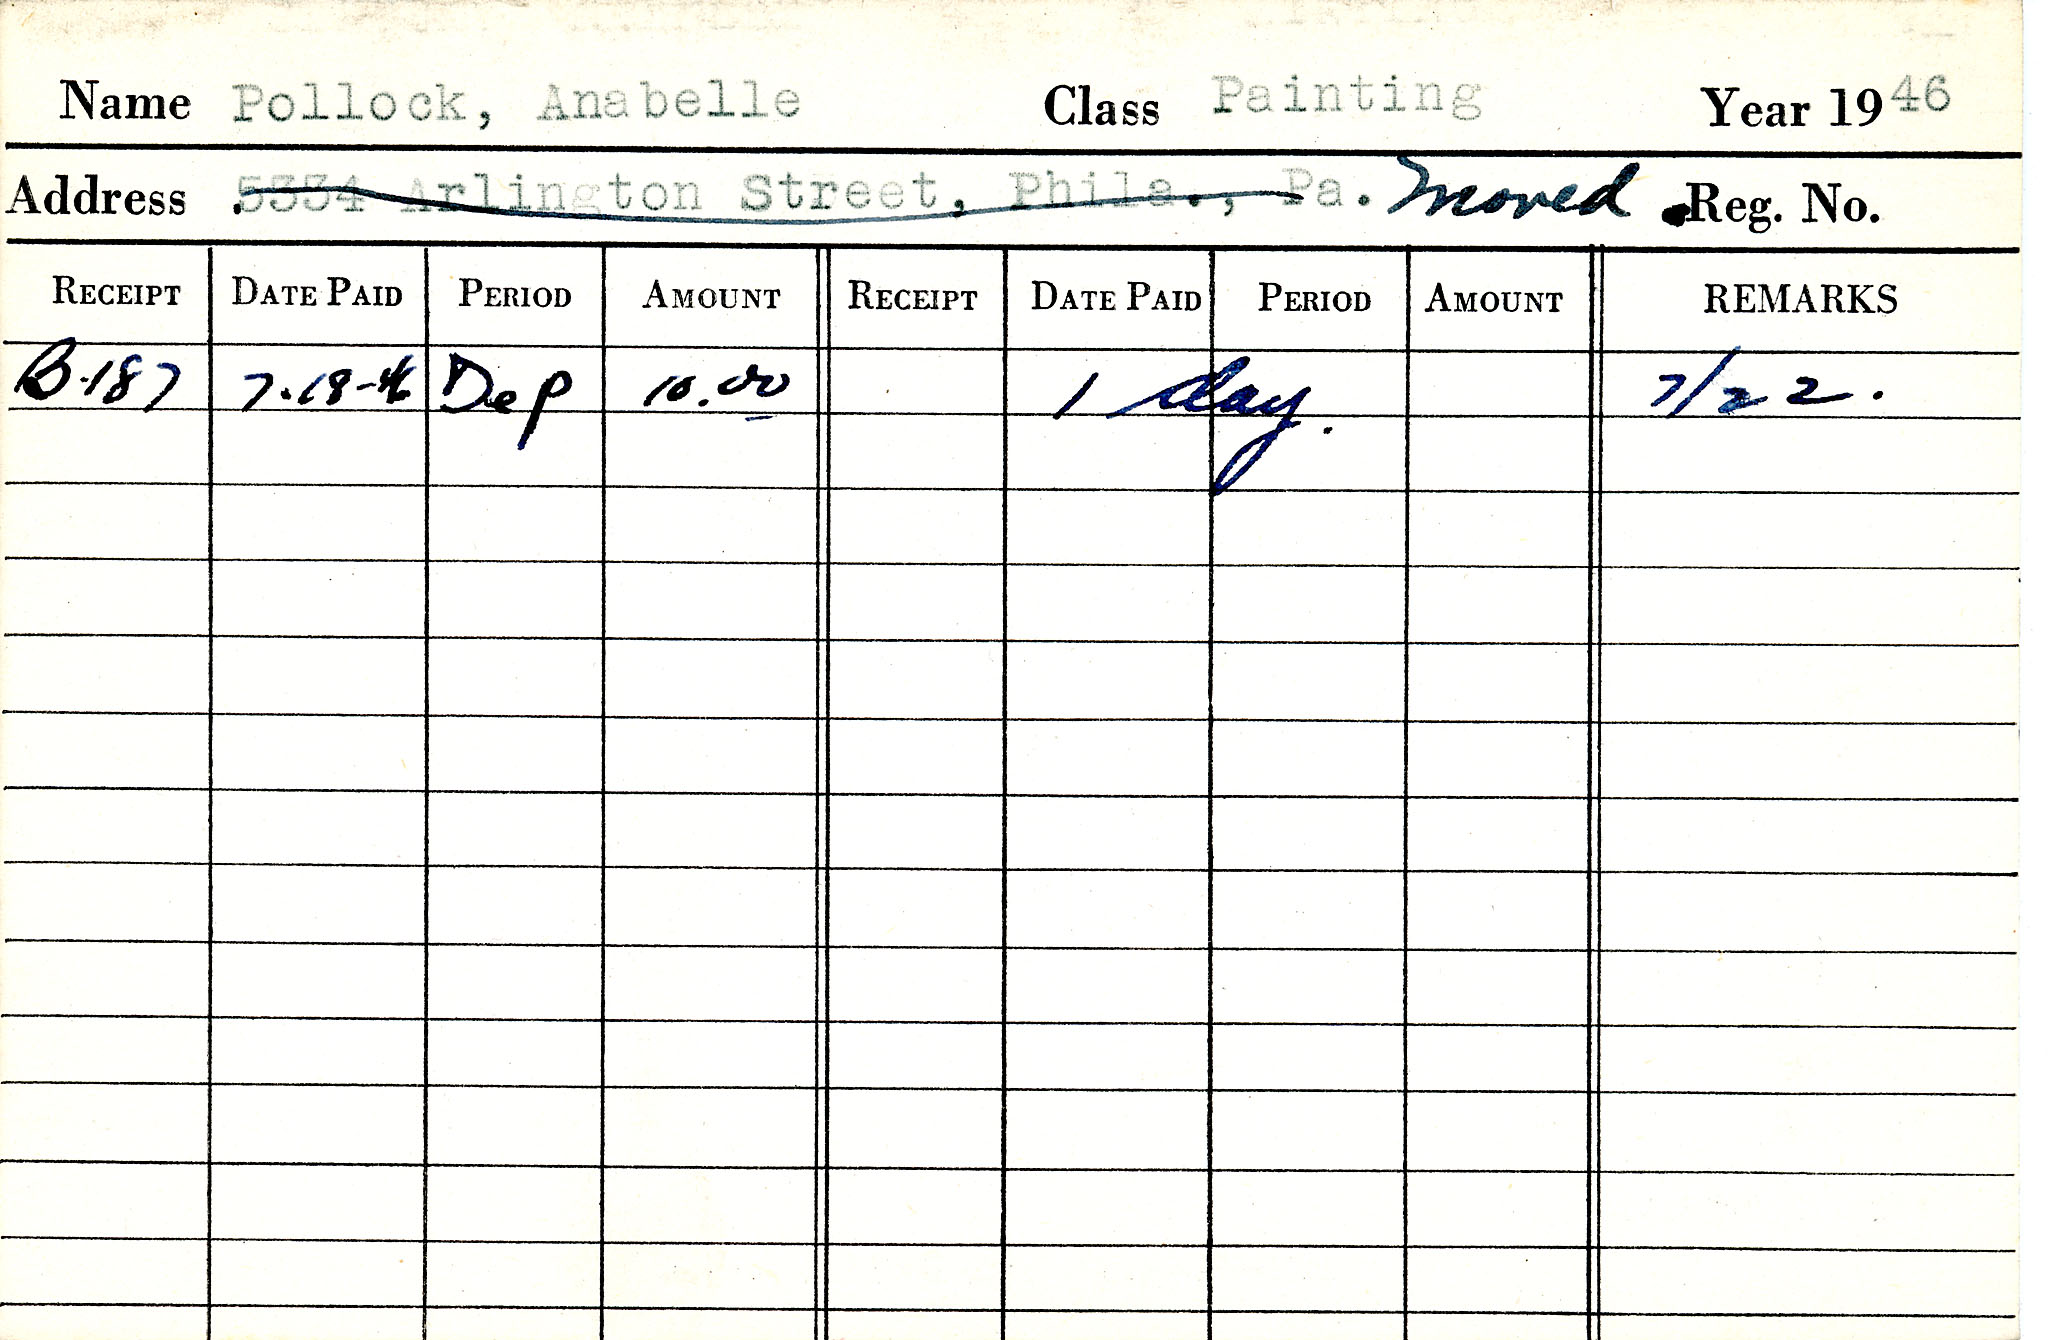 Name Pollock, Anabelle Class Painting Year 1946
Address 5334 Arlington Street, Phila., Pa. Moved Reg. No.
RECEIPT DATE PAID PERIOD AMOUNT RECEIPT DATE PAID PERIOD AMOUNT REMARKS
B-187 7-18-46 Dep 10.00 1 day. 7/22.